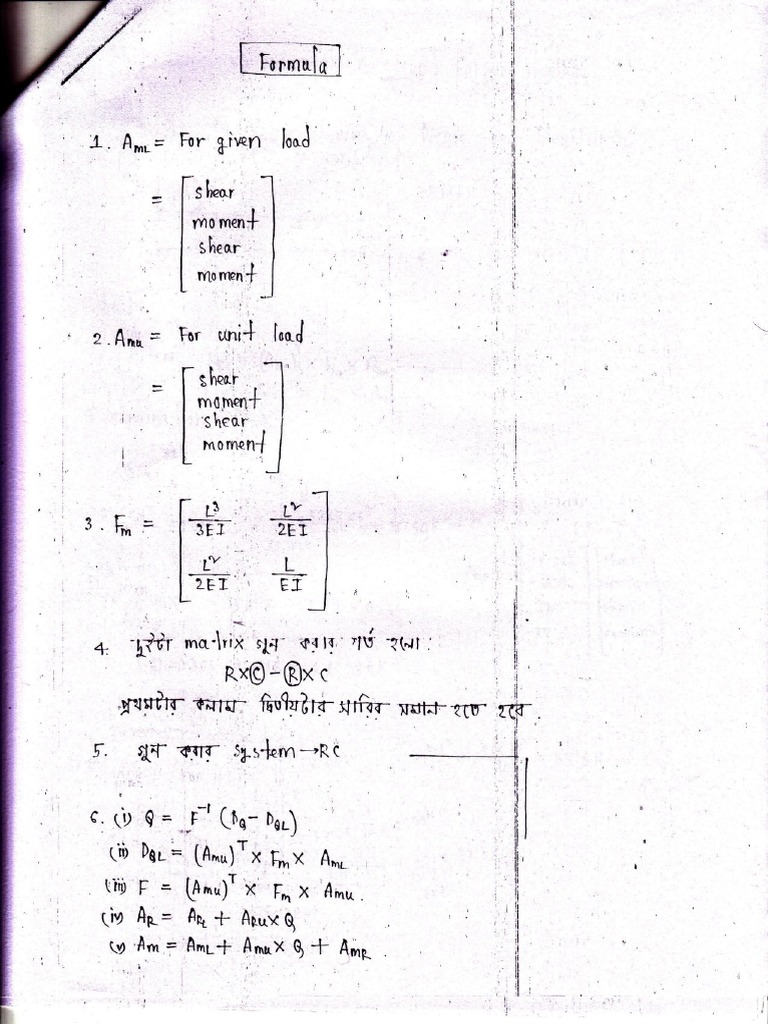 Formula
1. A_ML = For given load
= [shear
moment
shear
moment]
2. A_mu = For unit load
= [shear
moment
shear
moment]
3. F_m = [L³/3EI L²/2EI
L²/2EI L/EI]
4. দুইটা matrix গুন করার শর্ত হলো:
R×Ⓒ – Ⓡ×C
প্রথমটার কলাম দ্বিতীয়টার সারির সমান হতে হবে.
5. গুন করার system → RC
6. (i) Q = F⁻¹ (D_Q – D_QL)
(ii) D_QL = (A_mu)ᵀ × F_m × A_mL
(iii) F = (A_mu)ᵀ × F_m × A_mu.
(iv) A_R = A_RL + A_Ru × Q
(v) A_m = A_mL + A_mu × Q + A_mR